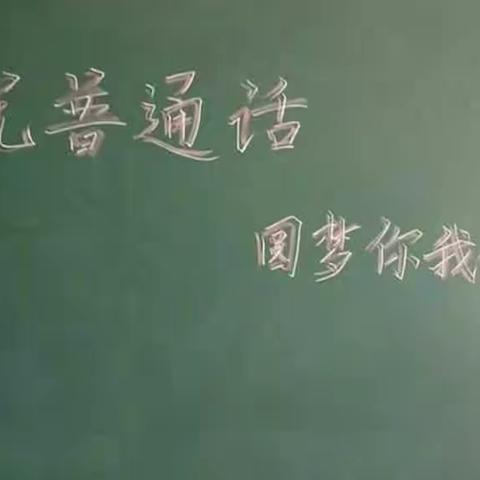 普通话
圆梦你我